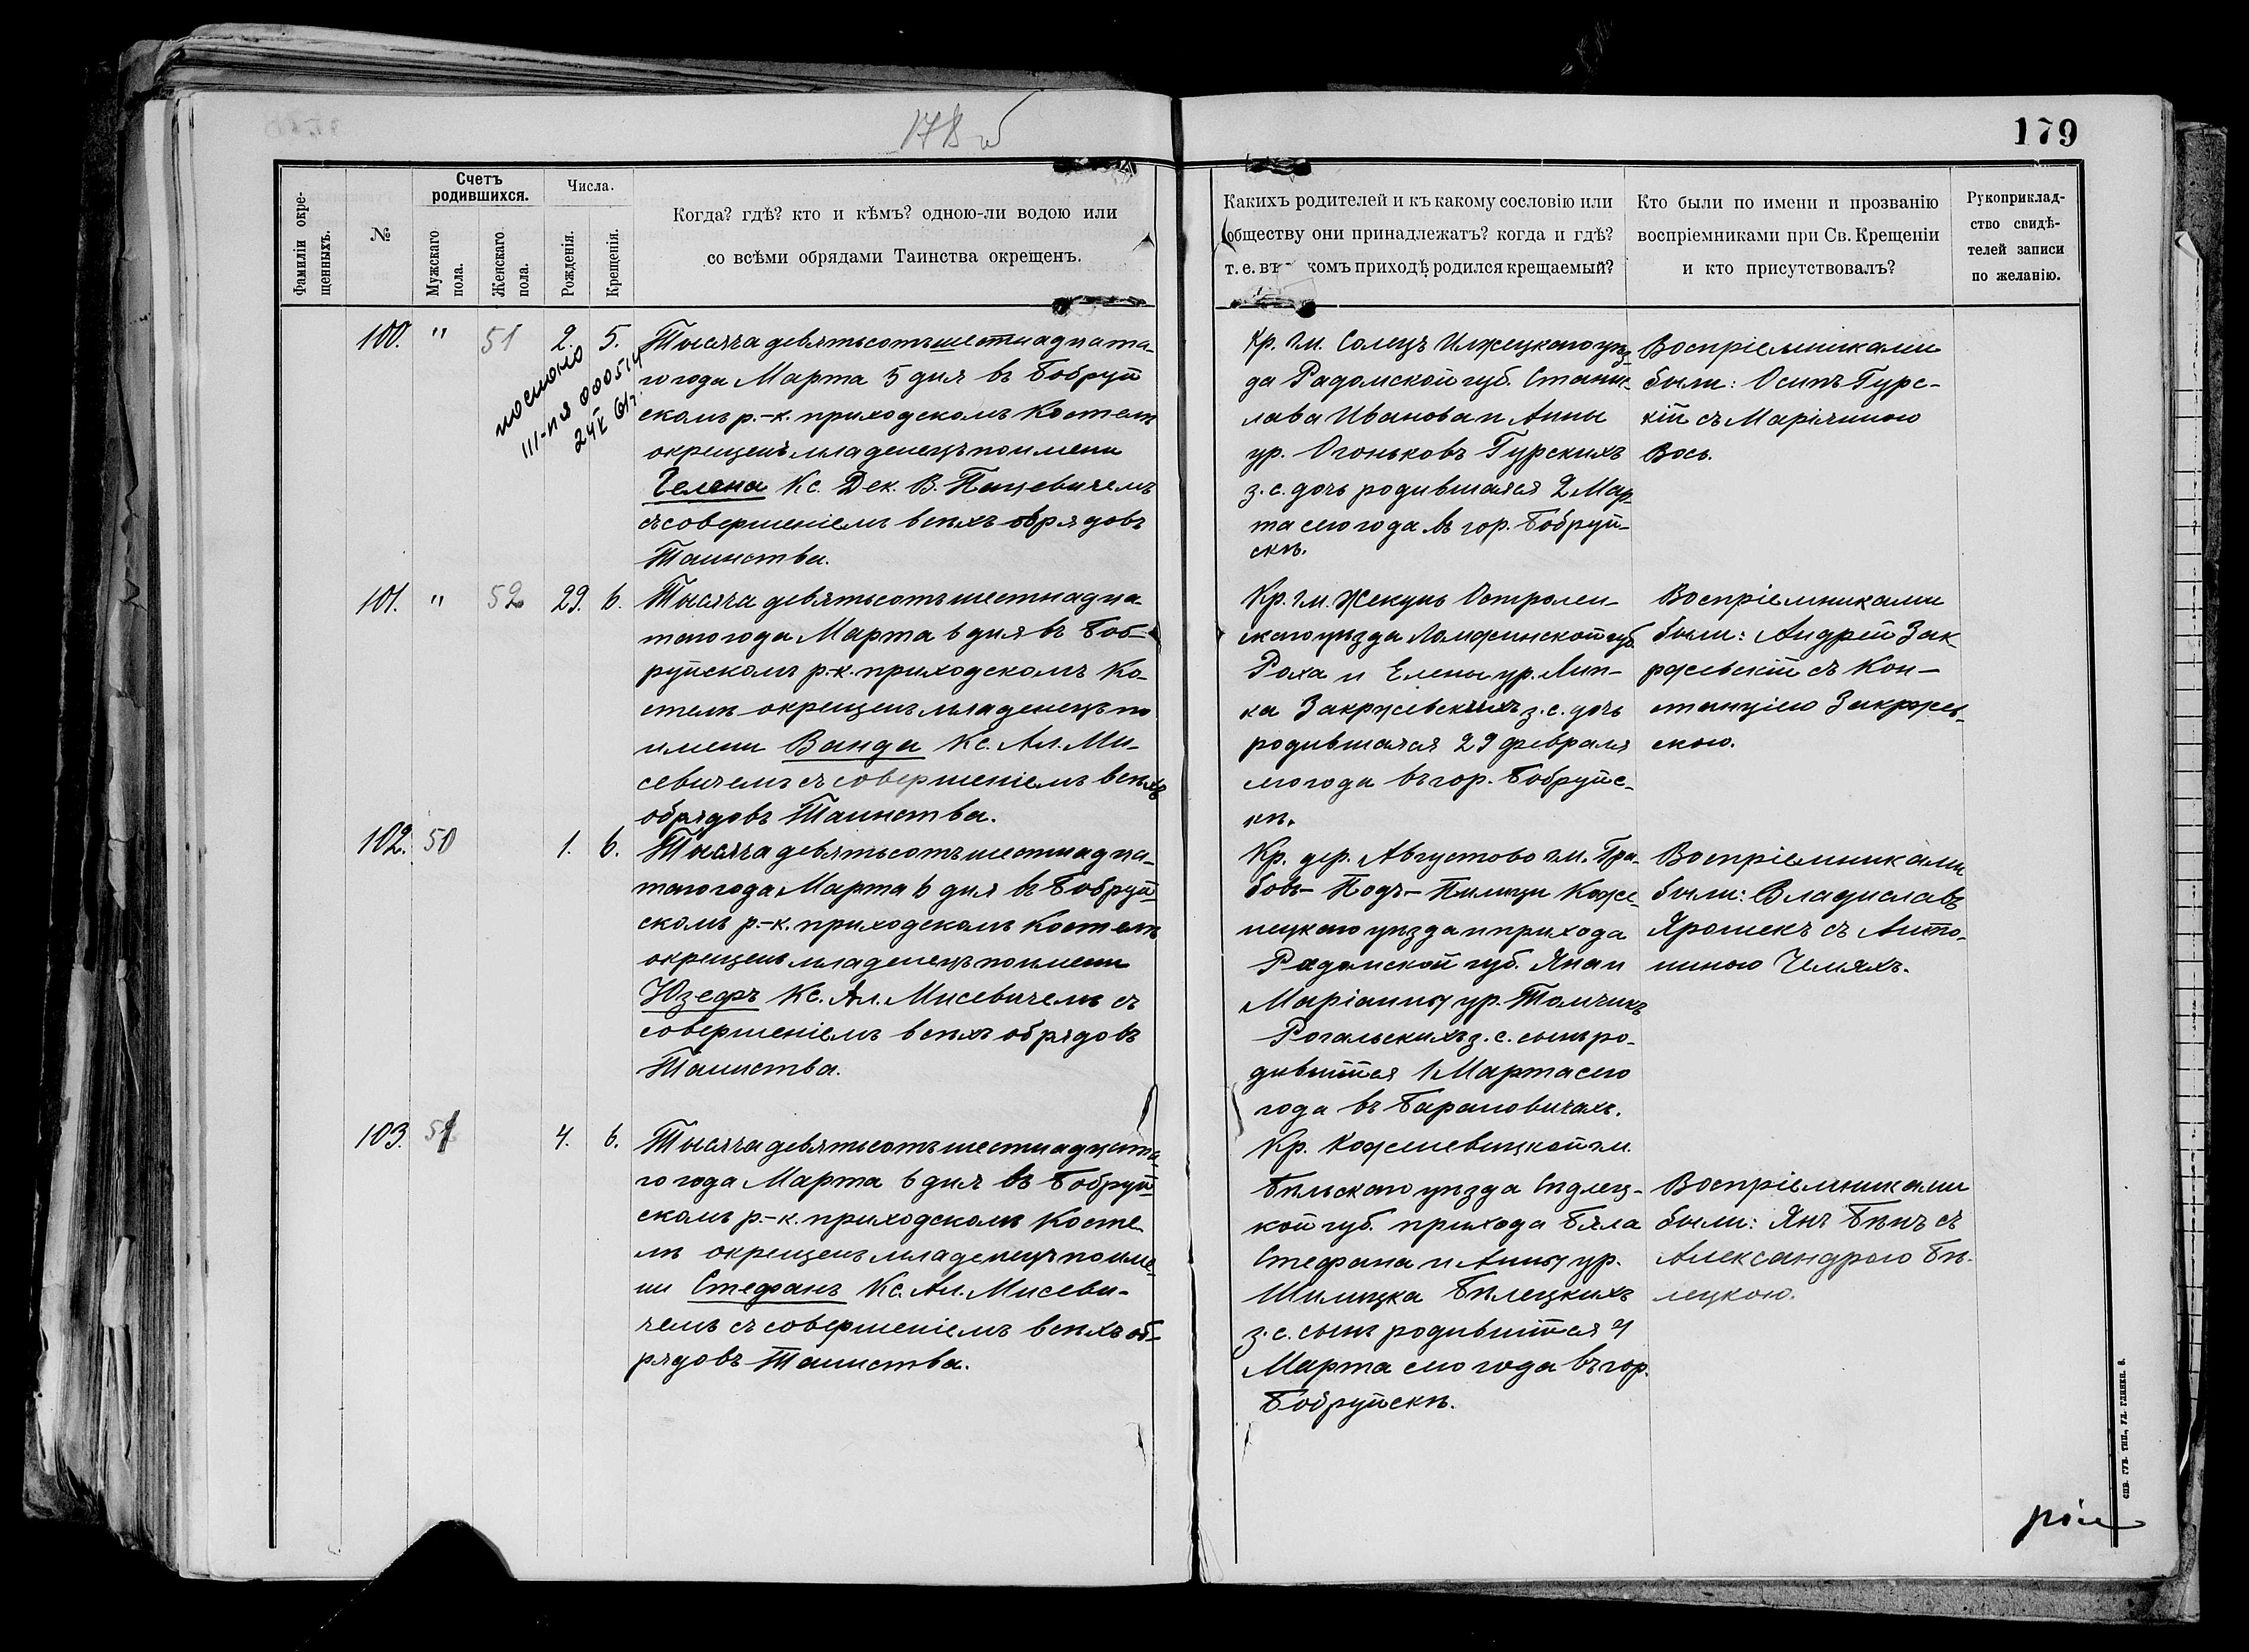 178 об
179
Фамиліи окре-
щенныхъ.
№
Счетъ
родившихся.
Мужскаго
пола.
Женскаго
пола.
Числа.
Рожденія.
Крещенія.
Когда? гдѣ? кто и кѣмъ? одною-ли водою или
со всѣми обрядами Таинства окрещенъ.
Какихъ родителей и къ какому сословію или
обществу они принадлежатъ? когда и гдѣ?
т. е. въ комъ приходѣ родился крещаемый?
Кто были по имени и прозванію
воспріемниками при Св. Крещеніи
и кто присутствовалъ?
Рукоприклад-
ство свидѣ-
телей записи
по желанію.
100. " 51 2. 5.
послано
III-ПЯ 000514
24/V 61г.
Тысяча девятьсотъ шестнадцата-
го года Марта 5 дня въ Бобруй
скомъ р.-к. приходскомъ Костелѣ
окрещенъ младенецъ по имени
Гелена Кс. Дек. В. Пацевичемъ
съ совершеніемъ всѣхъ обрядовъ
Таинства.
Кр. гм. Солецъ Илжецкаго уѣз-
да Радомской губ. Станис-
лава Иванова и Анны
ур. Огоньковъ Гурскихъ
з. с. дочь родившаяся 2 Мар-
та сего года въ гор. Бобруй-
скѣ.
Воспріемниками
были: Осипъ Гурс-
кій съ Маріянною
Вось.
101. " 52 29. 6.
Тысяча девятьсотъ шестнадца-
таго года Марта 6 дня въ Боб-
руйскомъ р.-к. приходскомъ Ко-
стелѣ окрещенъ младенецъ по
имени Ванда Кс. Ал. Ми-
севичемъ съ совершеніемъ всѣхъ
обрядовъ Таинства.
Кр. гм. Жекунь Остролен-
скаго уѣзда Ломжинской губ.
Роха и Елены ур. Лип-
ка Закржевскихъ з. с. дочь
родившаяся 29 февраля
сего года въ гор. Бобруйс-
кѣ.
Воспріемниками
были: Андрей Зак-
ржевскій съ Кон-
станціею Закржев-
скою.
102. 50 1. 6.
Тысяча девятьсотъ шестнадца-
таго года Марта 6 дня въ Бобруй-
скомъ р.-к. приходскомъ Костелѣ
окрещенъ младенецъ по имени
Юзефъ Кс. Ал. Мисевичемъ съ
совершеніемъ всѣхъ обрядовъ
Таинства.
Кр. дер. Августово гм. Гра-
бовъ-Подъ-Пилици Козе-
ницкаго уѣзда и прихода
Радомской губ. Яна и
Маріанны ур. Томчикъ
Рогальскихъ з. с. сынъ ро-
дившійся 1 Марта сего
года въ Барановичахъ.
Воспріемниками
были: Владиславъ
Ярошекъ съ Анто-
ниною Чемяхъ.
103. 51 4. 6.
Тысяча девятьсотъ шестнадцата-
го года Марта 6 дня въ Бобруй-
скомъ р.-к. приходскомъ Косте
лѣ окрещенъ младенецъ по име-
ни Стефанъ Кс. Ал. Мисеви-
чемъ съ совершеніемъ всѣхъ об-
рядовъ Таинства.
Кр. гм.
Бѣльскаго уѣзда Сѣдлец-
кой губ. прихода Бяла
Стефана и Анны ур.
Шилицка Бѣлецкихъ
з. с. сынъ родившійся 4
Марта сего года въ гор.
Бобруйскѣ.
Воспріемниками
были: Янъ Бѣнъ съ
Александрою Бѣ-
лецкою.
СПВ. ГУБ. ТИП., УЛ. ГЛИНКИ. 8.